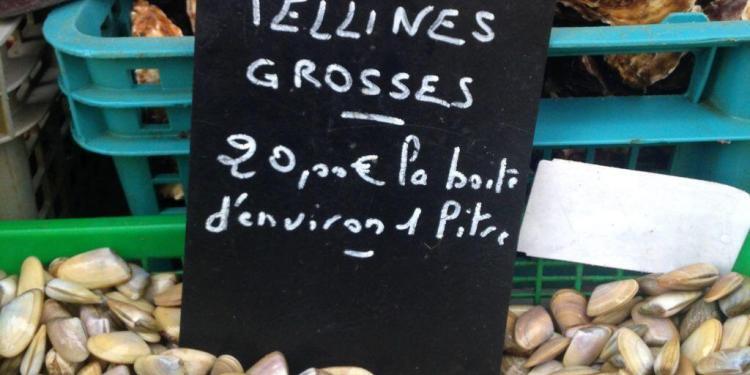 TELLINES
GROSSES
20,00€ la boite
d'environ 1 Pitre